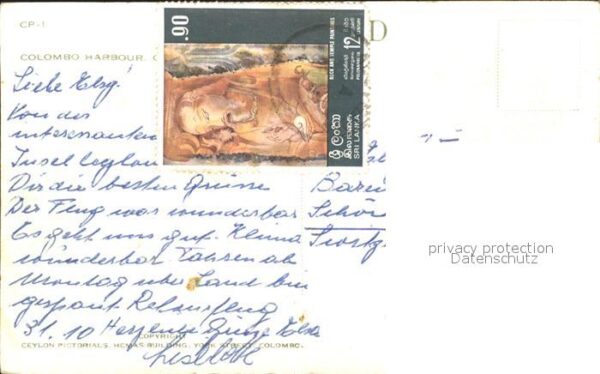 CP-1
COLOMBO HARBOUR, C
D
.90
ROCK AND TEMPLE PAINTINGS
12
CENTURY
POLONNARUWA
ශ්‍රී ලංකා
இலங்கை
SRI LANKA
Liebe Elsy!
Von der
interessanten
Insel Ceylon
Dir die besten Grüsse
Der Flug war wunderbar
Es geht uns gut. Klima
wunderbar. Fahren ab
Montag über Land bin
gespannt
31.10 Herzliche Grüsse
COPYRIGHT
CEYLON PICTORIALS, HEMAS BUILDING, YORK STREET, COLOMBO.
Schön
privacy protection
Datenschutz